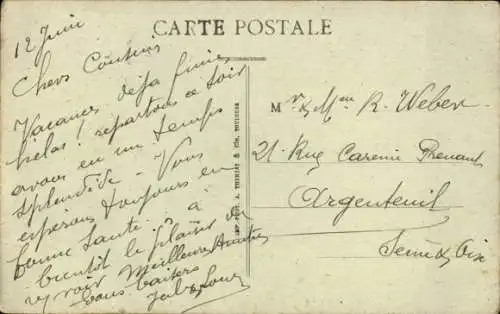 CARTE POSTALE
12 Juin
Chers Cousins
Vacances déja finies
helas! repartons ce soir
avons eu un temps
splendide. Vous
esperons toujours en
bonne santé .. à
bientôt le plaisir de
v/ voir Meilleures Amitiés
bons baisers
Mr & Mme R. Weber
21. Rue Carême Prenant
Argenteuil
Seine & Oise